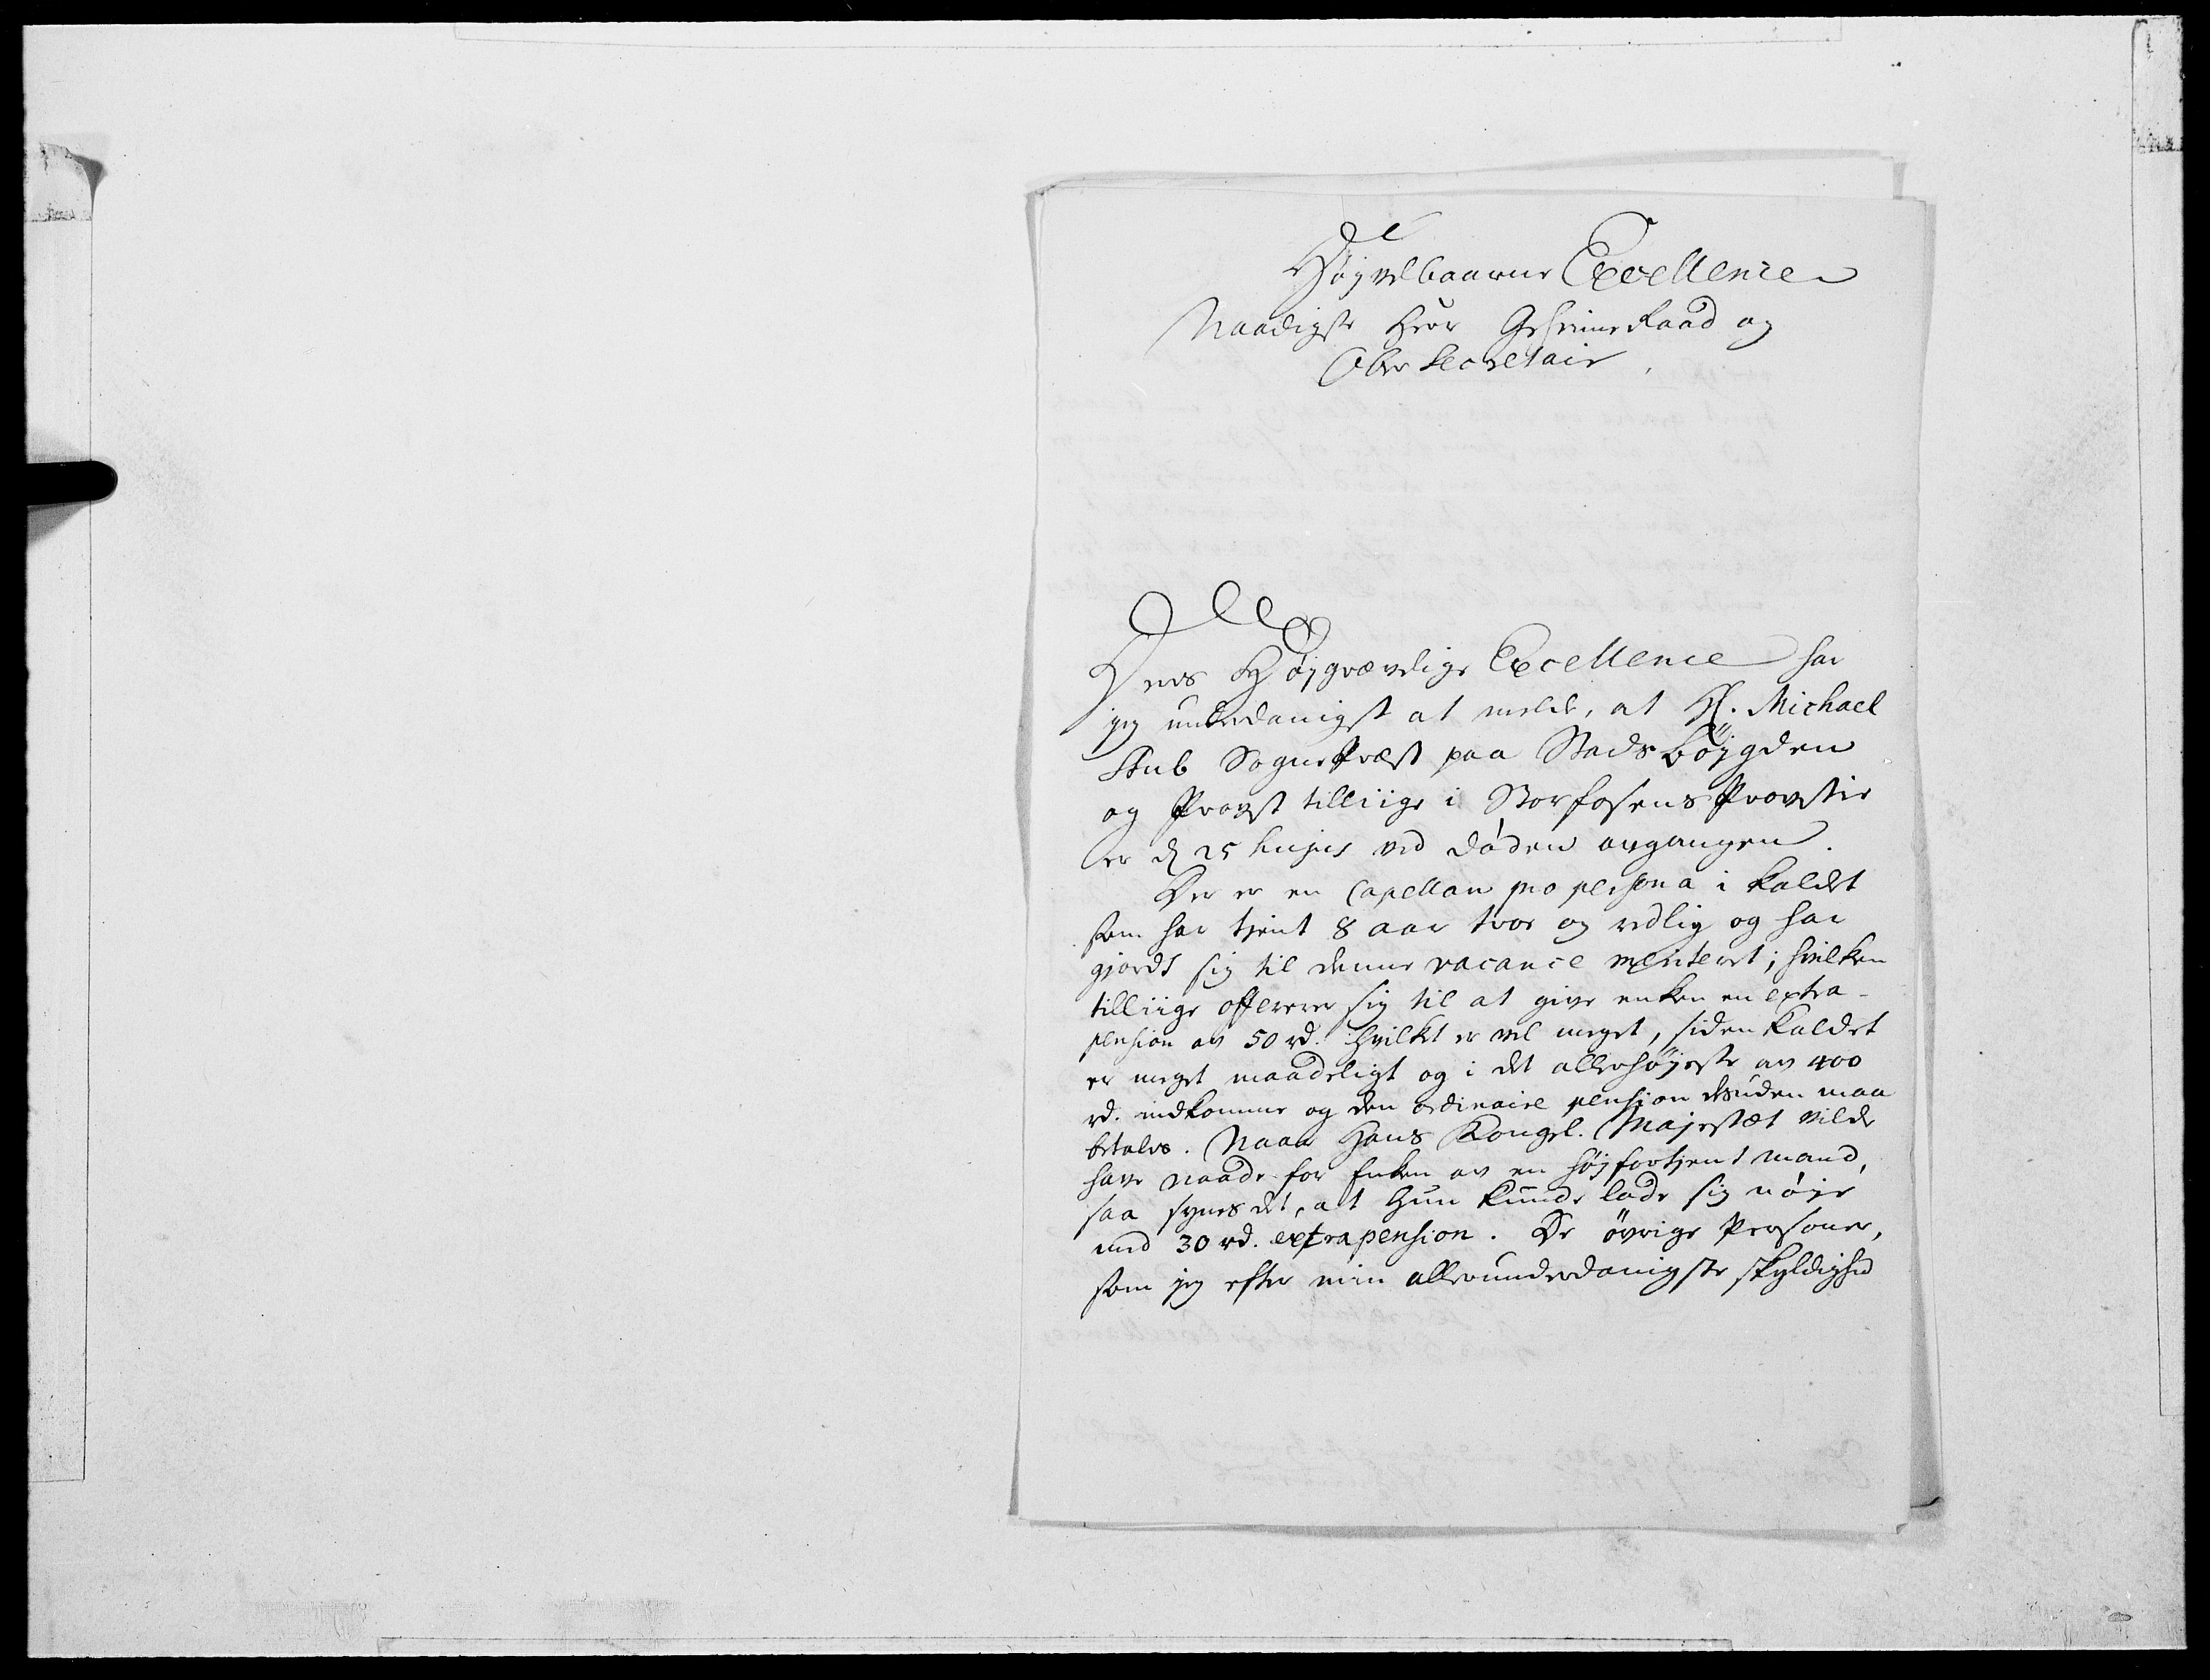 Højvelbaarne Excellence
Naadigste Herr Geheime Raad og
Ober Secretair,
Deres Højgrævelige Excellence har
jeg underdanigst at melde, at H. Michael
Stub SognePræst paa Stadsböygden
og Provst tilliige i Storfosens Provstie
er d 25 hujus ved døden avgangen.
Der er en Capellan pro persona i Kaldet
som har tjent 8 aar troe og redlig og har
gjordt sig til denne vacance meriteret; hvilken
tilliige offererer sig til at give enken en extra-
pension av 50 rd. hvilket er vel meget, siden Kaldet
er meget maadeligt og i det allerhøjeste av 400
rd. indkomme og den ordinaire pension desuden maa
betales. Naar Hans Kongel. Majestæt vilde
have naade for Enken av en højfortjent mand,
saa synes det, at Hun kunde lade sig nøje
med 30 rd. extrapension. De øvrige Personer,
som jeg efter min allerunderdanigste skyldighed